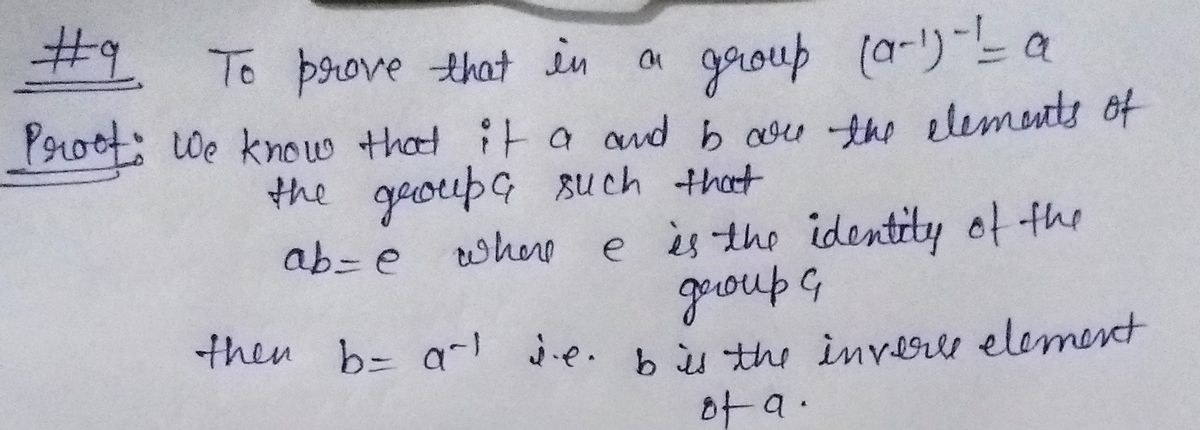 #9 To prove that in a group (a-1)-1 = a
Proof: We know that if a and b are the elements of
the group G such that
ab = e where e is the identity of the
group G
then b = a-1 i.e. b is the inverse element
of a.